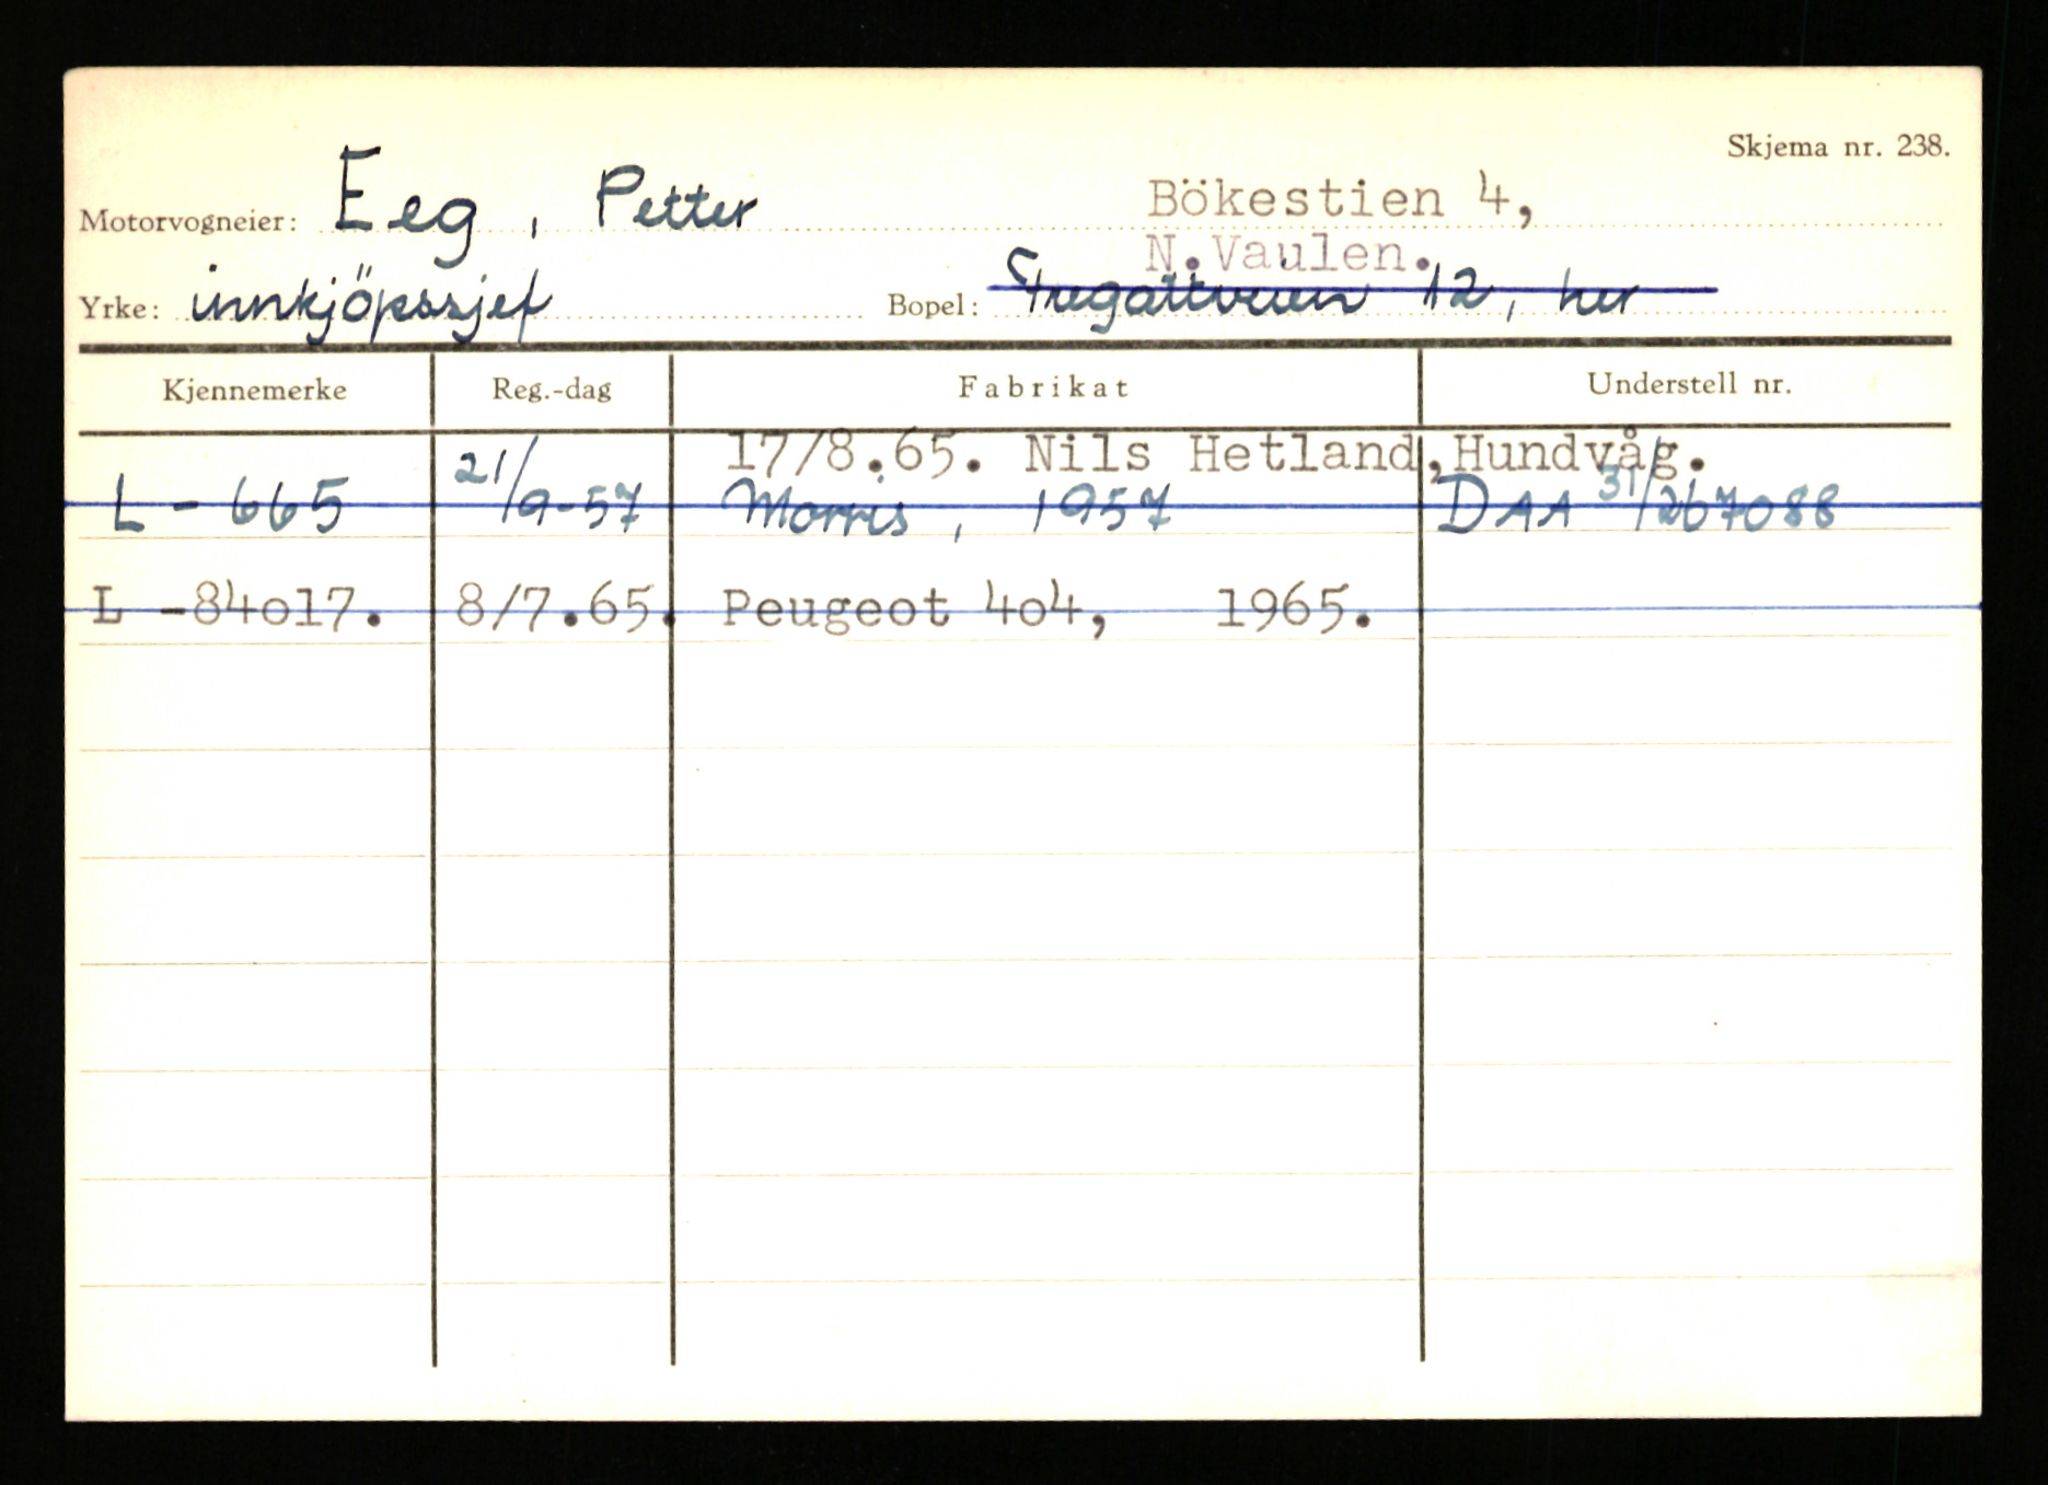 Skjema nr. 238.
Motorvogneier: Eeg, Petter Bökestien 4,
N.Vaulen.
Yrke: innkjöpssjef Bopel: Fregattveien 12, her
Kjennemerke Reg.-dag Fabrikat Understell nr.
17/8.65. Nils Hetland, Hundvåg.
L - 665 21/9-57 Morris, 1957 DAA 31/267088
L -84017. 8/7.65. Peugeot 404, 1965.